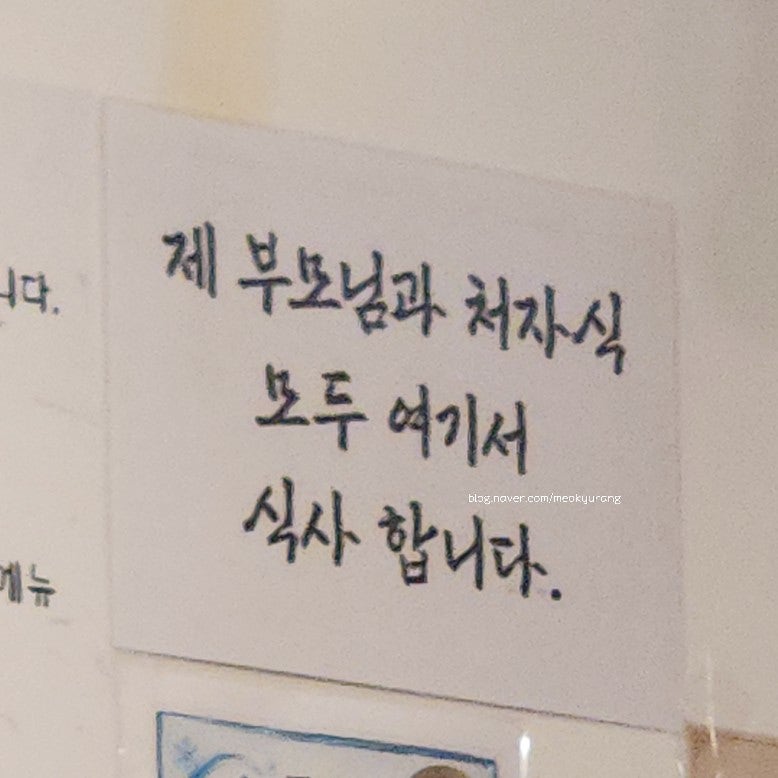 제 부모님과 처자식
모두 여기서
식사 합니다.
니다.
메뉴
blog.naver.com/meokyurang